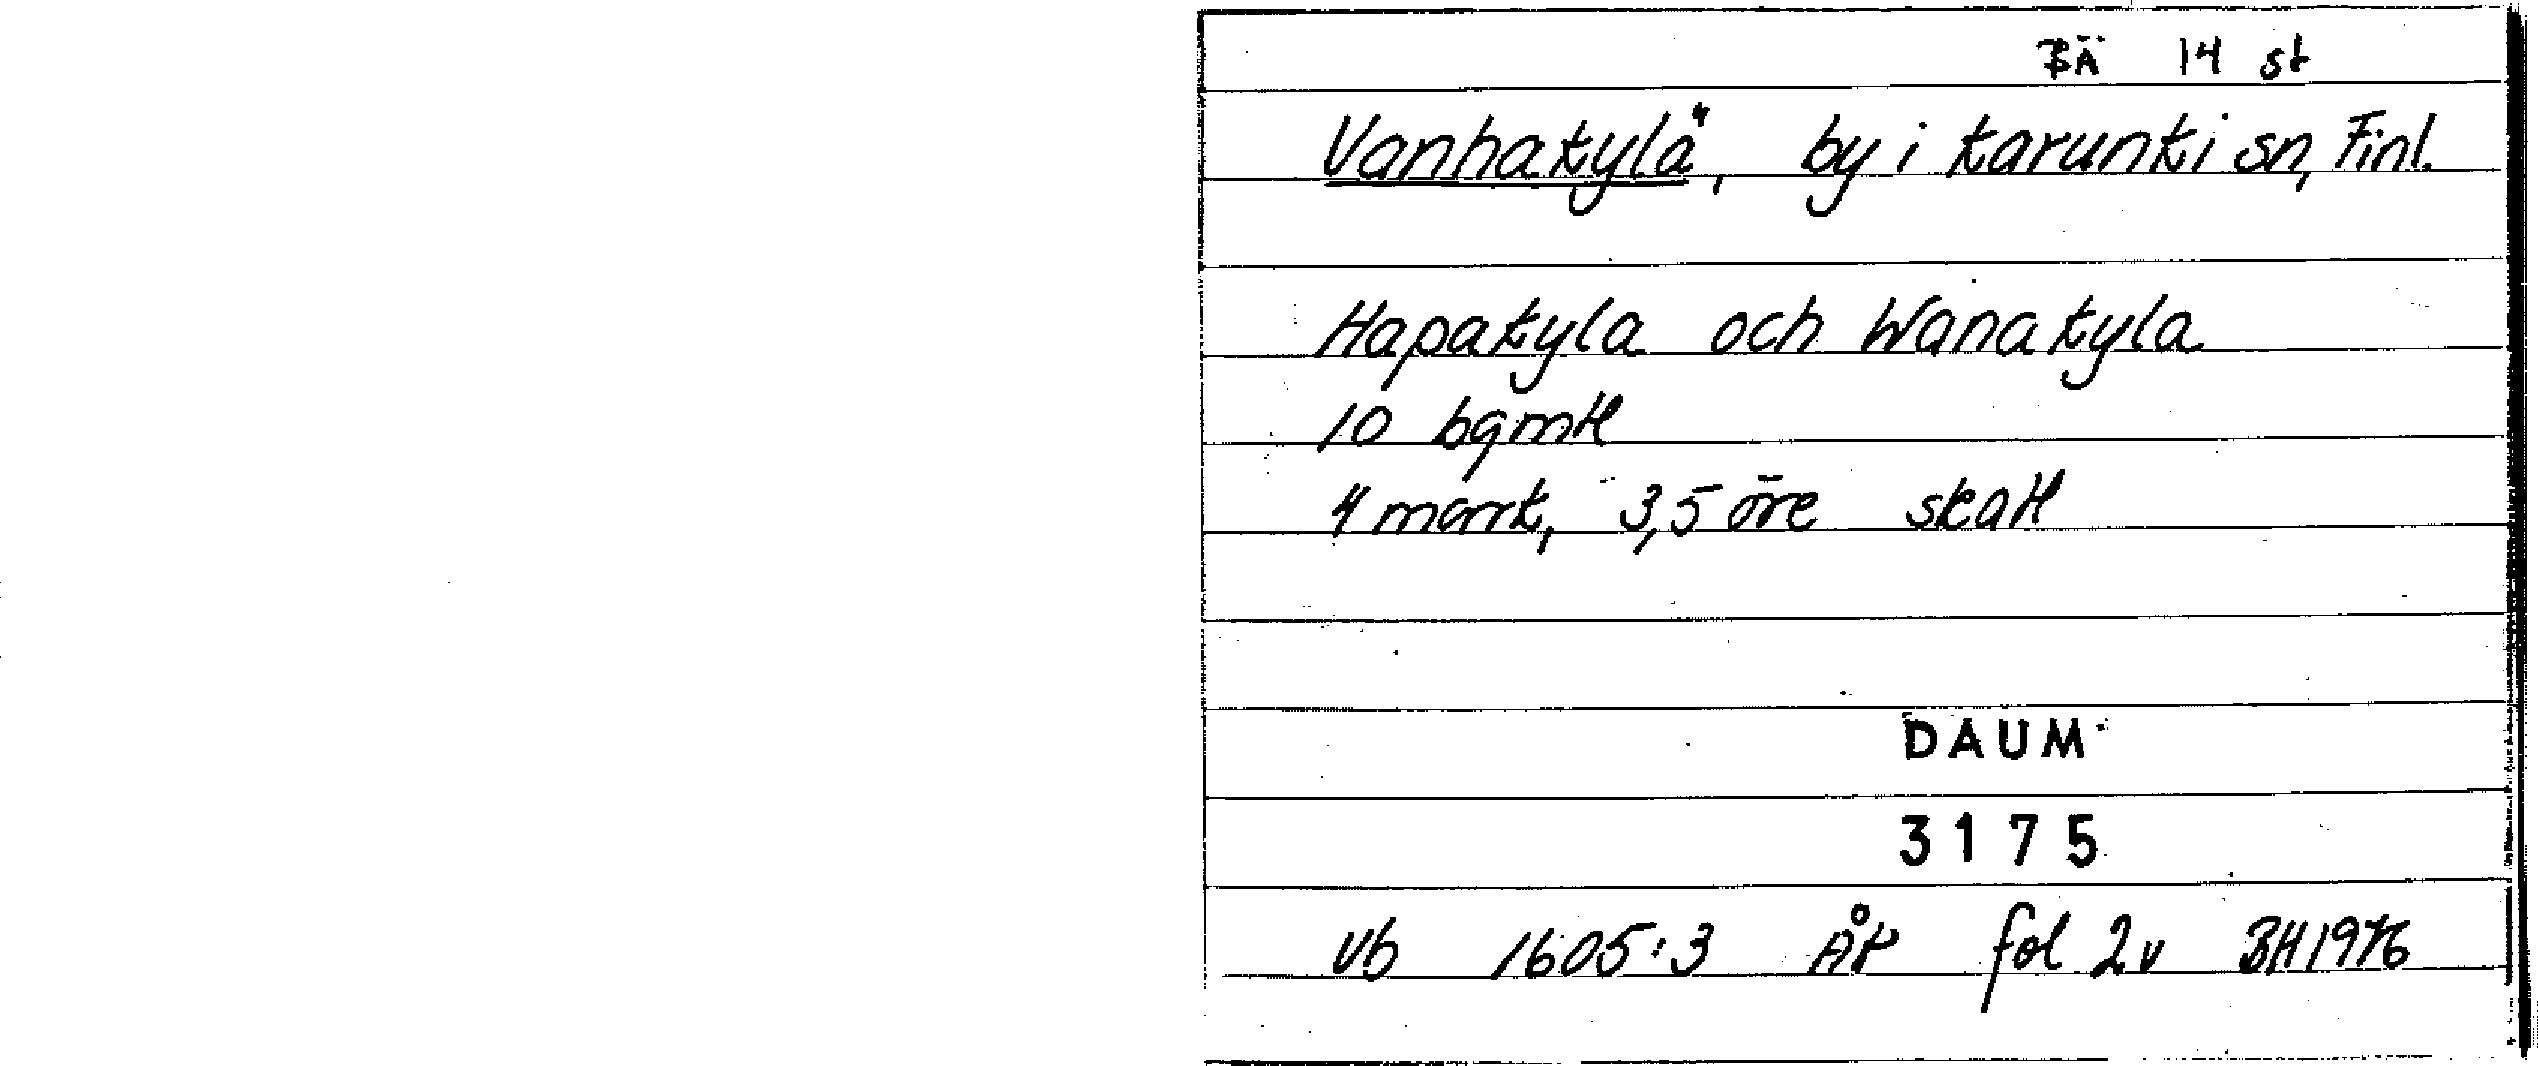 BÄ 14 st
Vanhakylä, by i Karunki sn, Finl.
Hapakyla och Wanakyla
10 bgmtl
4 mark, 3,5 öre skatt
DAUM
3175
Vb 1605:3 ÅK fol 2v BH1976